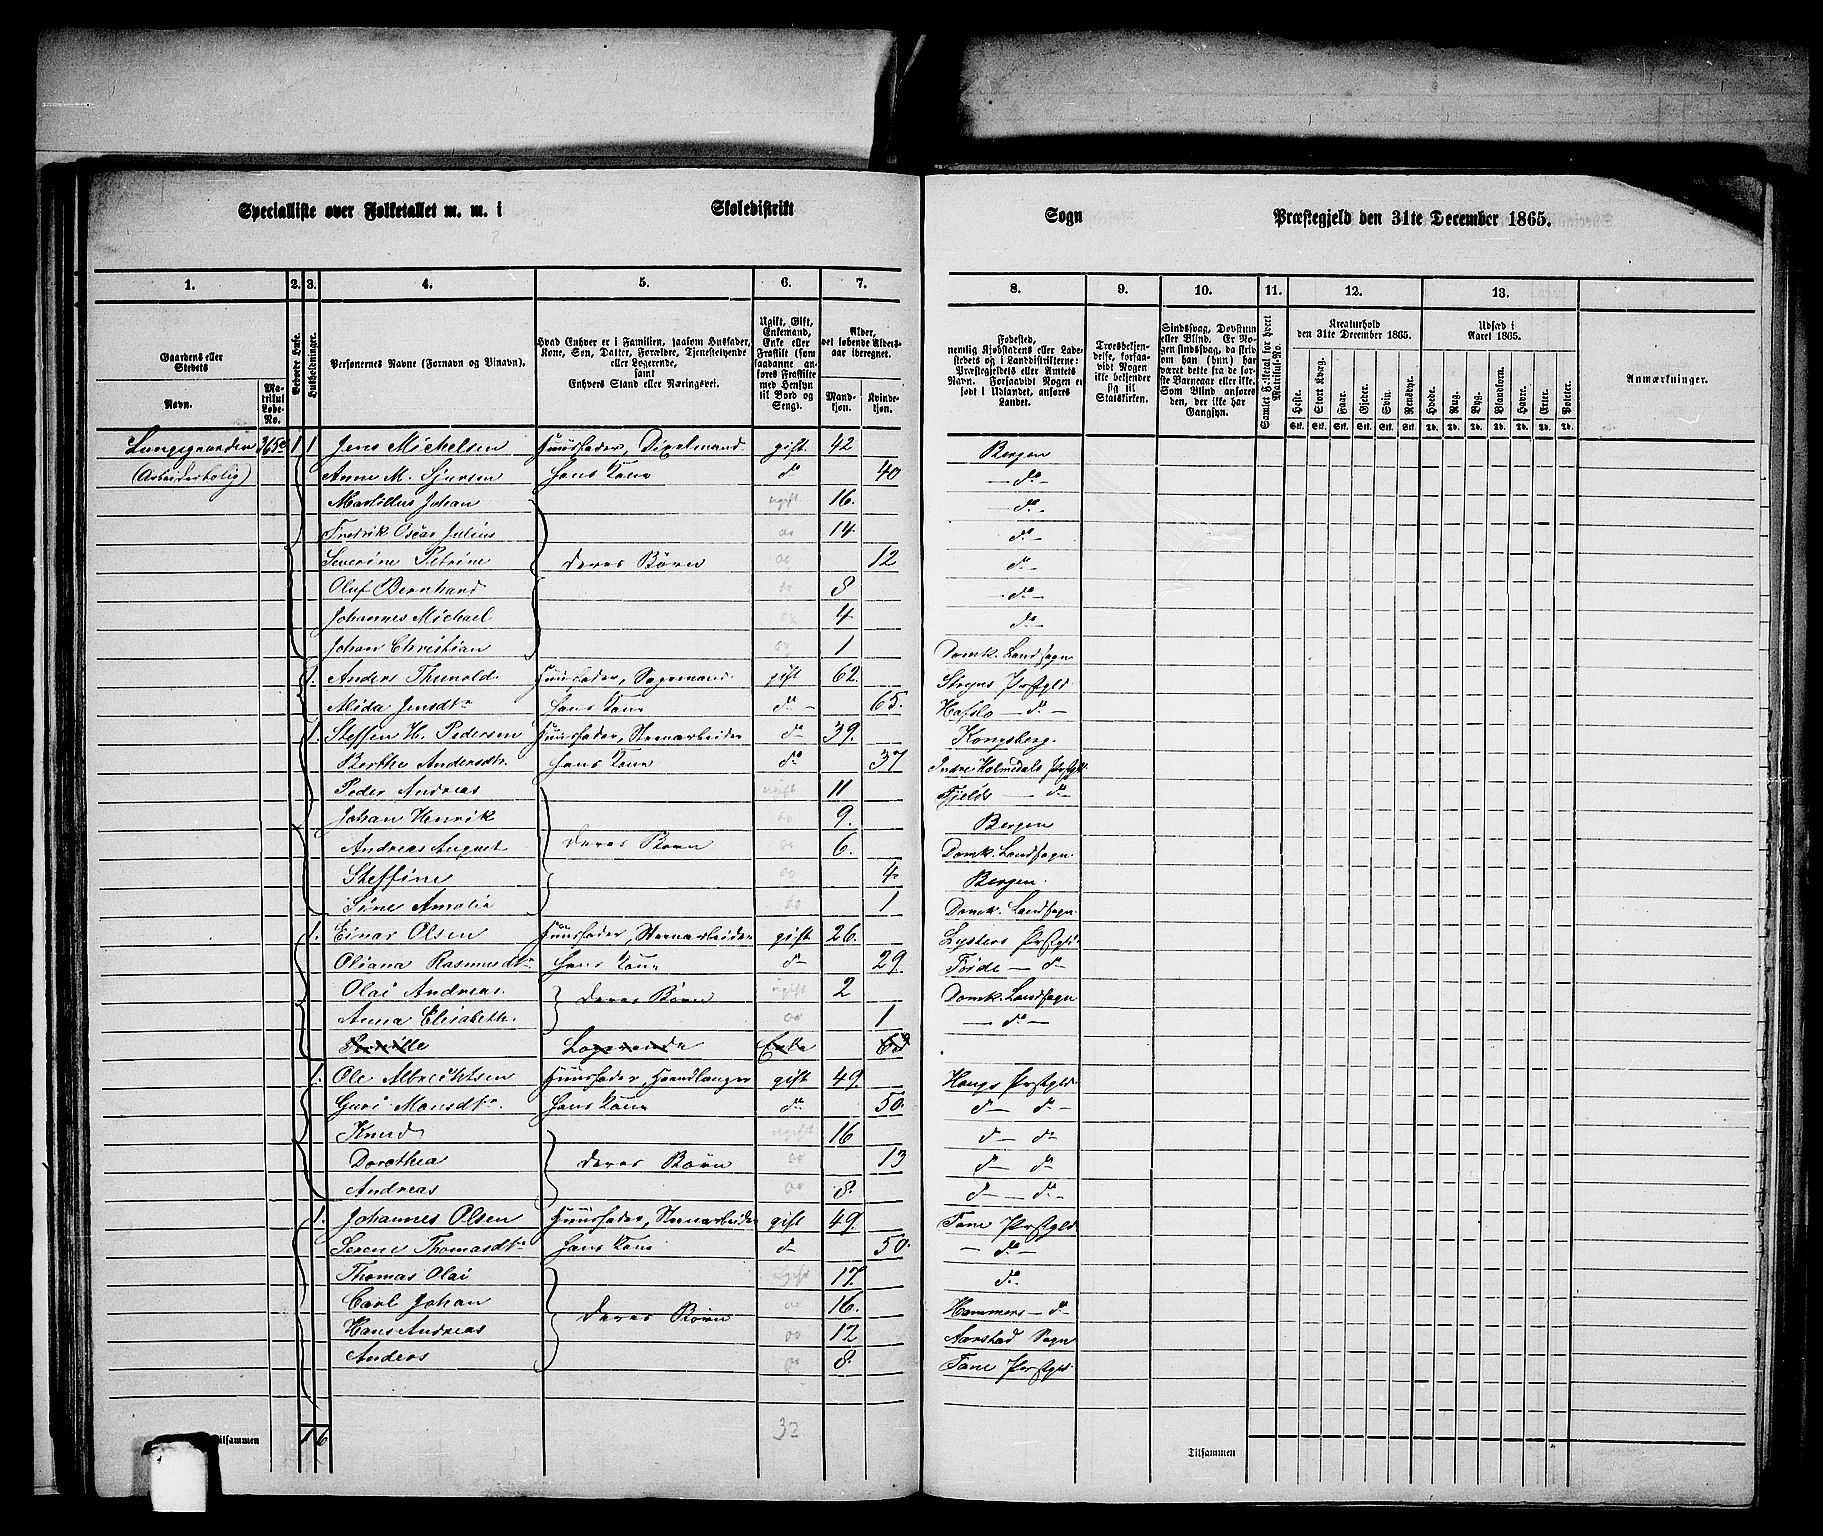 Specialliste over Folketallet m. m. i Skoledistrikt Sogn Præstegjeld den 31te December 1865.
1. 2. 3. 4. 5. 6. 7. 8. 9. 10. 11. 12. 13.
Gaardens eller Stedets
Navn.
Matrikul Løbe-No.
Beboede Huse.
Husholdninger.
Personernes Navne (Fornavn og Tilnavn).
Hvad Enhver er i Familien, saasom Husfader, Kone, Søn, Datter, Forældre, Tjenestetyende eller Logerende, samt Enhvers Stand eller Næringsvei.
Ugift, Gift, Enkemand, Enke eller Fraskilt (som saadanne anføres Fraskilte med Hensyn til Bord og Seng).
Alder, det løbende Aldersaar iberegnet.
Mandkjøn. Kvindekjøn.
Fødested, nemlig Kjøbstadens eller Ladestedets og i Landdistrikterne: Præstegjeldets eller Amtets Navn. Forsaavidt Nogen er født i Udlandet, anføres Landet.
Troesbekjendelse, forsaavidt Nogen ikke bekjender sig til Statskirken.
Sindssvag, Døvstum eller Blind. Er Nogen sindssvag, da skriv om han (hun) har været dette fra de første Barneaar eller ikke. Som Blind anføres den, der ikke har Gangsyn.
Samlet Folketal for hvert Matrikul-No.
Kreaturhold den 31te December 1865.
Heste. Stort Kvæg. Faar. Gjeder. Svin. Rensdyr.
Udsæd i Aaret 1865.
Hvede. Rug. Byg. Blandkorn. Havre. Erter. Poteter.
Anmærkninger.
Lungegaarden 365c 1 1 Jens Michelsen Huusfader, Dixelmand. gift. 42 Bergen
(Arbeiderbolig) Anne M. Sjursen Hans Kone do 40 do
Martillus Johan ugift 16. do
Fredrik Oscar Julius do 14. do
Severine Petrine deres Børn do 12 do
Oluf Bernhard do 8 do
Johannes Michael do 4 do
Johan Christian do 1 Domk. Landsogn
1. Anders Thunold Huusfader, gift 62. Stryns Prstgld
Alida Jensdtr Hans Kone do 65. Hafslo do
1. Steffen H. Pedersen Huusfader, Steenarbeider do 39. Kongsberg.
Berthe Andersdtr. Hans Kone do 37 Indre Holmedals Prstgld
Peder Andreas ugift 11 Fjelds do
Johan Henrik do 9. Bergen
Andreas August deres Børn do 6. Domk. Landsogn
Steffine do 4 Bergen.
Sine Amalie do 1 Domk. Landsogn.
1. Einar Olsen Huusfader, Steenarbeider gift 26. Lysters Prstgld
Oliana Rasmusdtr Hans Kone do 29. Førde do
Olai Andreas. deres Børn ugift 2 Domk. Landsogn
Anna Elisabeth. do 1 do
Logerende Enke
1. Ole Albrechtsen Huusfader, Haandlanger gift 49. Haugs Prstgld
Guri Monsdtr. Hans Kone do 50. do do
Knud ugift 16 do do
Dorothea deres Børn do 13 do do
Andreas do 8. do do
1. Johannes Olsen Huusfader, Steenarbeider gift 49. Fane Prstgld
Serene Thomasdtr Hans Kone do 50. do
Thomas Olai ugift 17. do
Carl Johan deres Børn do 16. Hammers do
Hans Andreas do 12 Aarstad Sogn
Anders do 8. Fane Prstgld.
Tilsammen 1 6 32 Tilsammen